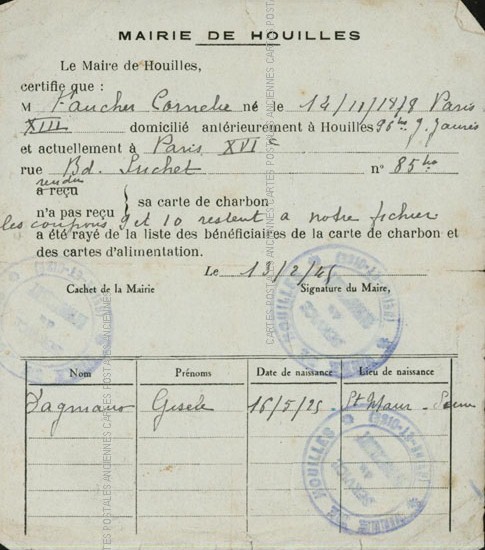 MAIRIE DE HOUILLES
Le Maire de Houilles,
certifie que :
M Faucher Cornelie né le 12/11/1878 Paris
XIII domicilié antérieurement à Houilles 96 bis J. Jaurès
et actuellement à Paris XVI e
rue Bd. Suchet n° 85 bis
rendu
a reçu
n'a pas reçu } sa carte de charbon
les coupons 9 et 10 restent a notre fichier
a été rayé de la liste des bénéficiaires de la carte de charbon et
des cartes d'alimentation.
Le 13/2/45
Cachet de la Mairie Signature du Maire,
Nom Prénoms Date de naissance Lieu de naissance
Gisèle 16/5/25 St Maur - Seine
CARTES POSTALES ANCIENNES CARTES POSTALES ANCIENNES CARTES POSTALES ANCIENNES
MAIRIE DE HOUILLES (SEINE-ET-OISE)